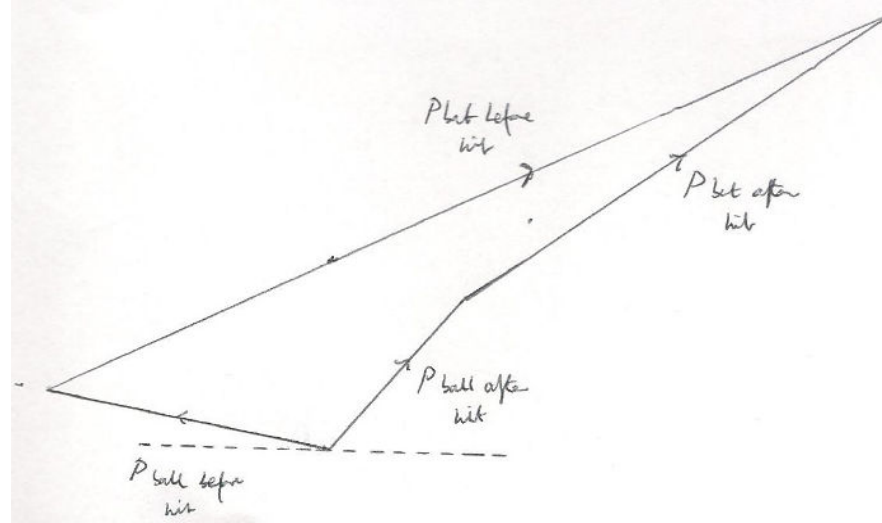 P bat before
hit
P bat after
hit
P ball after
hit
P ball before
hit